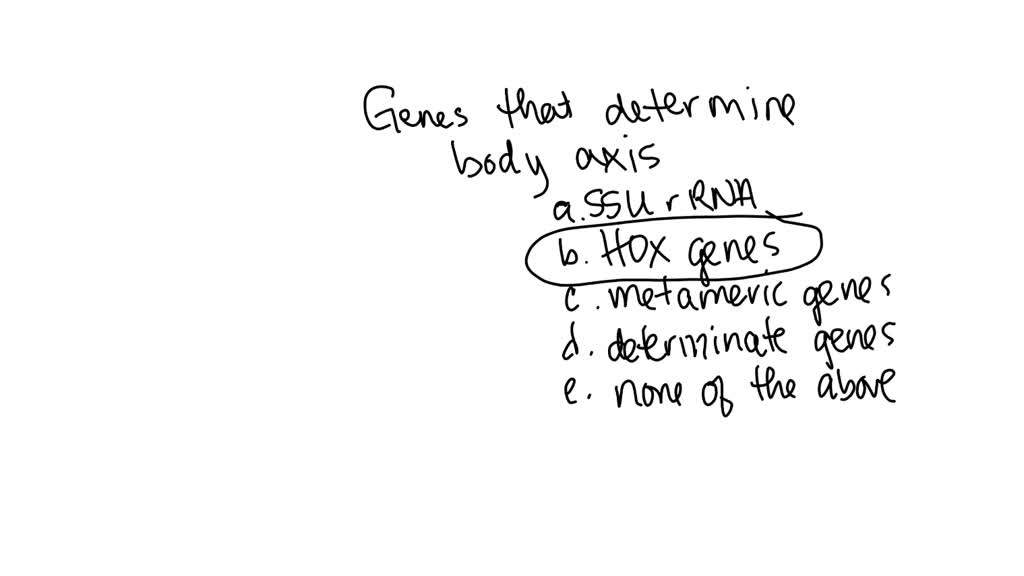 Genes that determine
body axis
a. SSU rRNA
b. HOX genes
c. metameric genes
d. determinate genes
e. none of the above